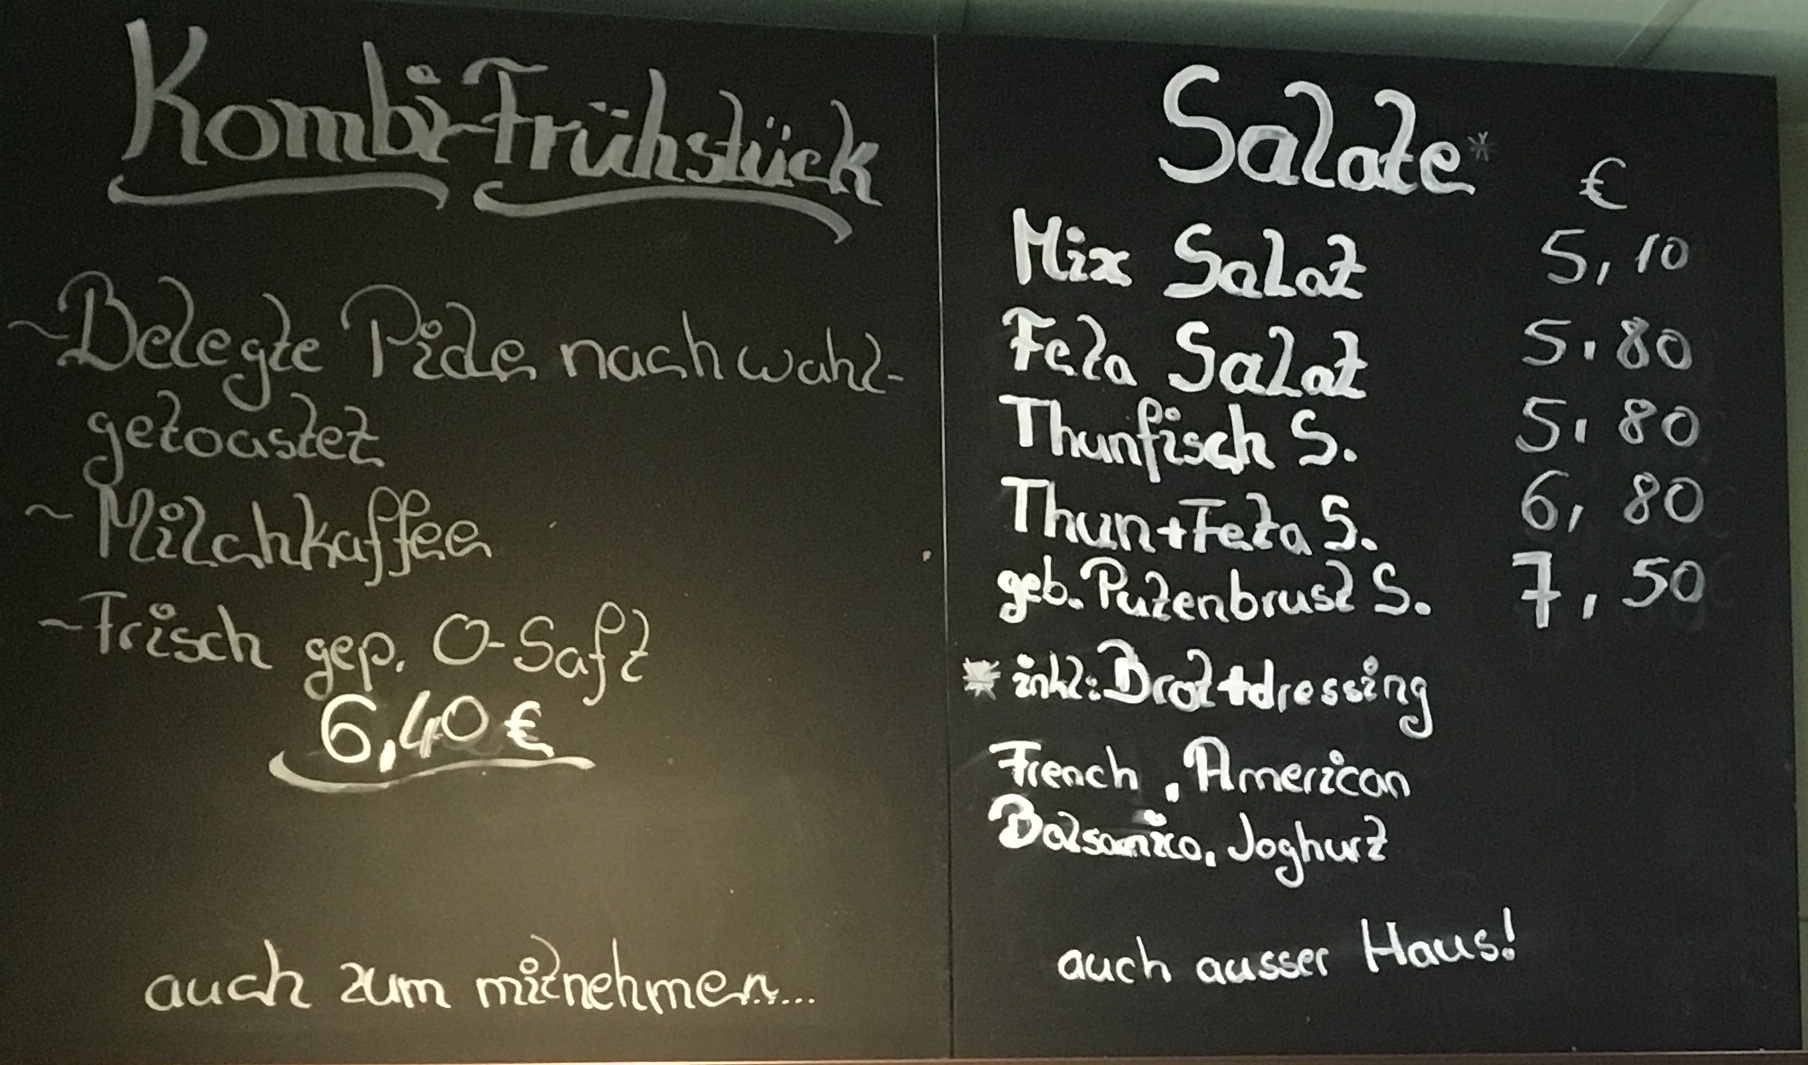 Kombi-Frühstück
~Belegte Pide nach wahl-
getoastet
~Milchkaffee
~Frisch gep. O-Saft
6,40 €
auch zum mitnehmen.....
Salate* €
Mix Salat 5,10
Feta Salat 5,80
Thunfisch S. 5,80
Thun+Feta S. 6,80
geb. Putenbrust S. 7,50
* inkl: Brot+dressing
French, American
Balsamico, Joghurt
auch ausser Haus!